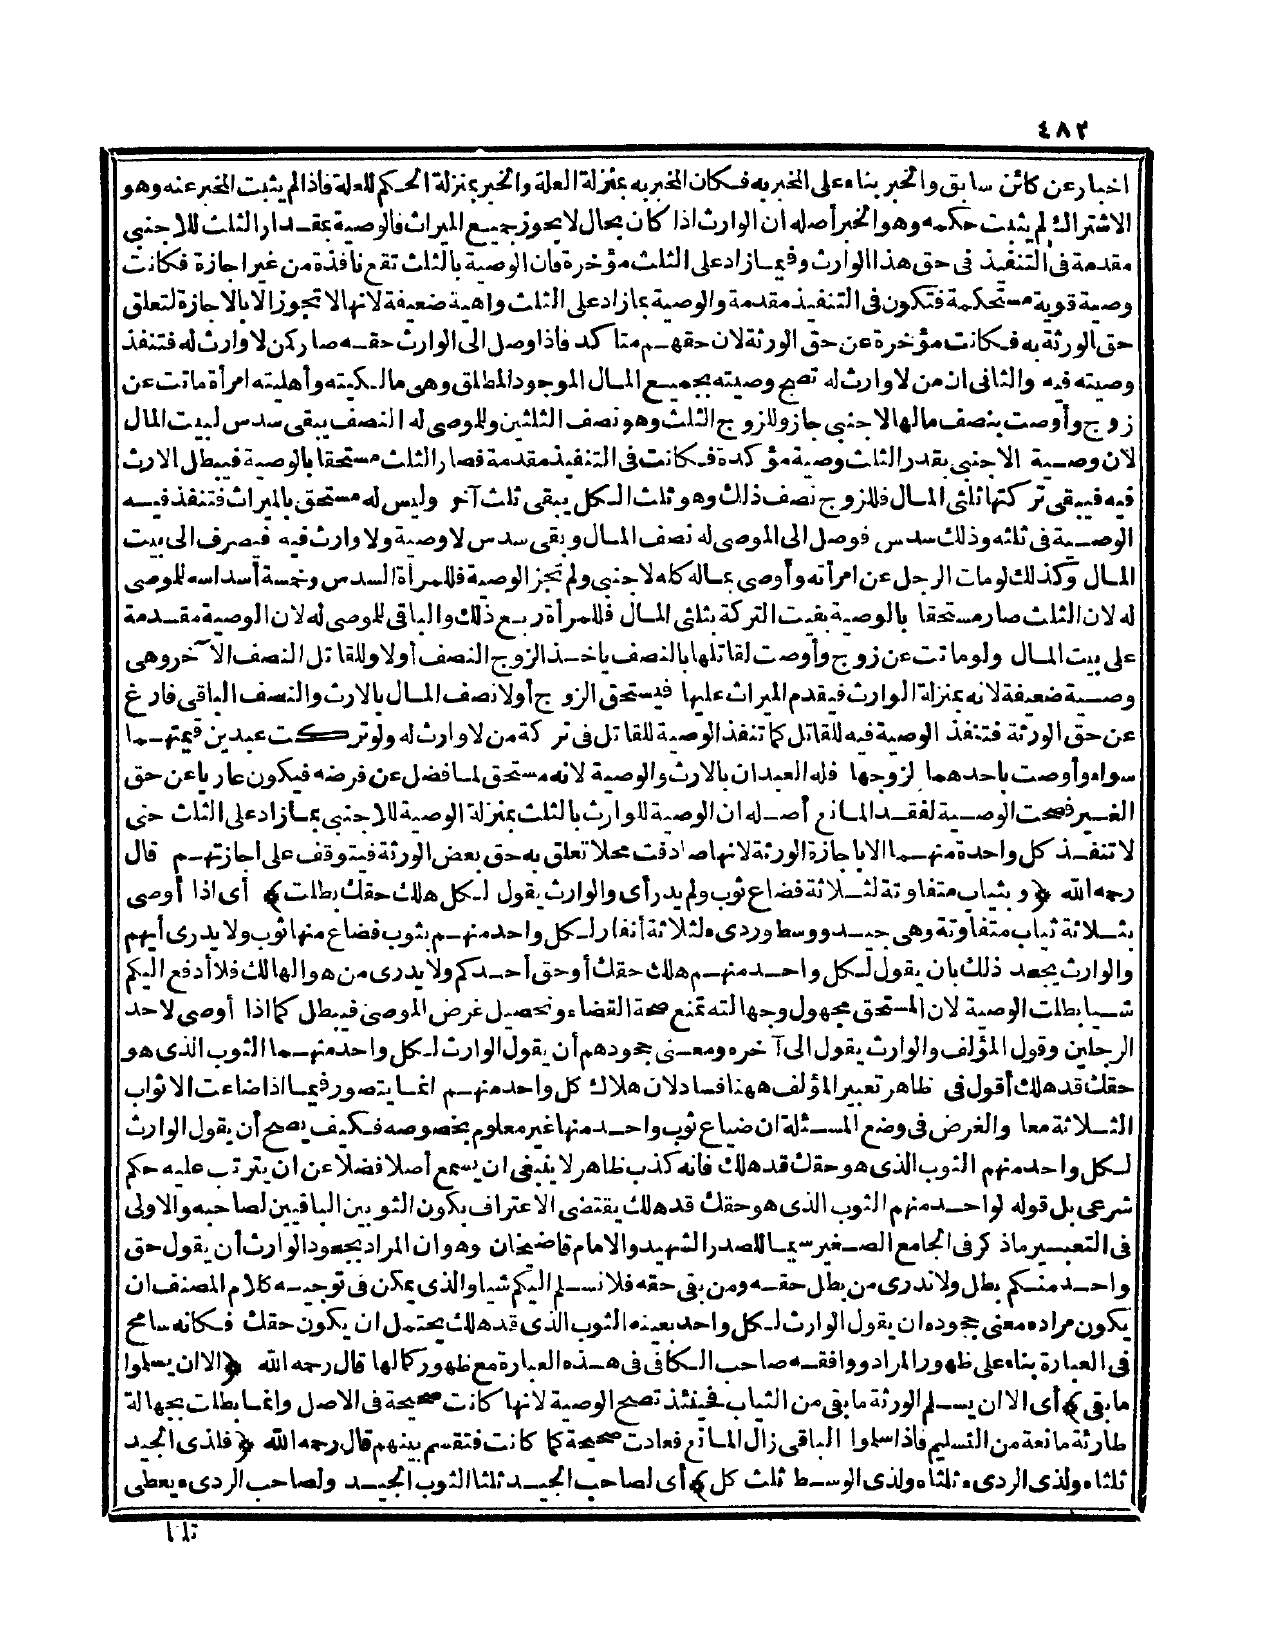 ٤٨٢
اخبار عن كائن سابق والخبر بناء على المخبر به فكان المخبر به بمنزلة العلة والخبر بمنزلة الحكم للعلة فاذا لم يثبت المخبر عنه وهو
الاشتراك لم يثبت حكمه وهو الخبر أصله ان الوارث اذا كان بحال لا يحوز جميع الميراث فالوصية بمقدار الثلث للاجنبي
مقدمة في التنفيذ في حق هذا الوارث وفيما زاد على الثلث مؤخرة فان الوصية بالثلث تقع نافذة من غير اجازة فكانت
وصية قوية مستحكمة فتكون في التنفيذ مقدمة والوصية بما زاد على الثلث واهية ضعيفة لانها لا تجوز الا بالاجازة لتعلق
حق الورثة به فكانت مؤخرة عن حق الورثة لان حقهم متأكد فاذا وصل الى الوارث حقه صار كمن لا وارث له فتنفذ
وصيته فيه والثاني ان من لا وارث له تصح وصيته بجميع المال الموجود المطلق وهي مالكيته وأهليته امرأة ماتت عن
زوج وأوصت بنصف مالها لاجنبي جاز وللزوج الثلث وهو نصف الثلثين وللموصى له النصف يبقى سدس لبيت المال
لان وصية الاجنبي بقدر الثلث وصية مؤكدة فكانت في التنفيذ مقدمة فصار الثلث مستحقا بالوصية فيبطل الارث
فيه فيبقى تركتها ثلثي المال فللزوج نصف ذلك وهو ثلث الكل يبقى ثلث آخر وليس له مستحق بالميراث فتنفذ فيه
الوصية في ثلثه وذلك سدس فوصل الى الموصى له نصف المال وبقى سدس لا وصية ولا وارث فيه فيصرف الى بيت
المال وكذلك لو مات الرجل عن امرأته وأوصى بماله كله لاجنبي ولم تجز الوصية فللمرأة السدس وخمسة أسداسه للموصى
له لان الثلث صار مستحقا بالوصية بقيت التركة بثلثي المال فللمرأة ربع ذلك والباقي للموصى له لان الوصية مقدمة
على بيت المال ولو ماتت عن زوج وأوصت لقاتلها بالنصف ياخذ الزوج النصف أولا وللقاتل النصف الآخر وهي
وصية ضعيفة لانه بمنزلة الوارث فيقدم الميراث عليها فيستحق الزوج أولا نصف المال بالارث والنصف الباقي فارغ
عن حق الورثة فتنفذ الوصية فيه للقاتل كما تنفذ الوصية للقاتل في تركة من لا وارث له ولو تركت عبدين قيمتهما
سواء وأوصت باحدهما لزوجها فله العبدان بالارث والوصية لانه مستحق لما فضل عن فرضه فيكون عاريا عن حق
الغير فصحت الوصية لفقد المانع أصله ان الوصية للوارث بالثلث بمنزلة الوصية للاجنبي بما زاد على الثلث حتى
لا تنفذ كل واحدة منهما الا باجازة الورثة لانها صادفت محلا تعلق به حق بعض الورثة فيتوقف على اجازتهم قال
رحمه الله ﴿وبثياب متفاوتة لثلاثة فضاع ثوب ولم يدر أى والوارث يقول لكل هلك حقك بطلت﴾ أى اذا أوصى
بثلاثة ثياب متفاوتة وهي جيد ووسط وردىء لثلاثة أنفار لكل واحد منهم بثوب فضاع منها ثوب ولا يدرى أيهم
والوارث يجحد ذلك بان يقول لكل واحد منهم هلك حقك أو حق أحدكم ولا يدرى من هو الهالك فلا أدفع اليكم
شيا بطلت الوصية لان المستحق مجهول وجهالته تمنع صحة القضاء وتحصيل غرض الموصى فيبطل كما اذا أوصى لاحد
الرجلين وقول المؤلف والوارث يقول الى آخره ومعنى جحودهم أن يقول الوارث لكل واحد منهما الثوب الذى هو
حقك قد هلك أقول في ظاهر تعبير المؤلف ههنا فساد لان هلاك كل واحد منهم انما يتصور فيما اذا ضاعت الاثواب
الثلاثة معا والغرض في وضع المسئلة ان ضياع ثوب واحد منها غير معلوم بخصوصه فكيف يصح أن يقول الوارث
لكل واحد منهم الثوب الذى هو حقك قد هلك فانه كذب ظاهر لا ينبغى ان يسمع أصلا فضلا عن ان يترتب عليه حكم
شرعى بل قوله لواحد منهم الثوب الذى هو حقك قد هلك يقتضى الاعتراف بكون الثوبين الباقيين لصاحبه والاولى
في التعبير ماذكر في الجامع الصغير سيما للصدر الشهيد والامام قاضيخان وهو ان المراد بجحود الوارث أن يقول حق
واحد منكم بطل ولا ندرى من بطل حقه ومن بقى حقه فلا نسلم اليكم شيا والذى يمكن في توجيه كلام المصنف ان
يكون مراده معنى جحوده ان يقول الوارث لكل واحد بعينه الثوب الذى قد هلك يحتمل ان يكون حقك فكانه سامح
في العبارة بناء على ظهور المراد ووافقه صاحب الكافى فى هذه العبارة مع ظهور كمالها قال رحمه الله ﴿الا ان يسلموا
ما بقى﴾ أى الا ان يسلم الورثة ما بقى من الثياب فحينئذ تصح الوصية لانها كانت صحيحة فى الاصل وانما بطلت بجهالة
طارئة مانعة من التسليم فاذا سلموا الباقى زال المانع فعادت صحيحة كما كانت فتقسم بينهم قال رحمه الله ﴿فلذى الجيد
ثلثاه ولذى الردىء ثلثاه ولذى الوسط ثلث كل﴾ أى لصاحب الجيد ثلثا الثوب الجيد ولصاحب الردىء يعطى
ثلثا